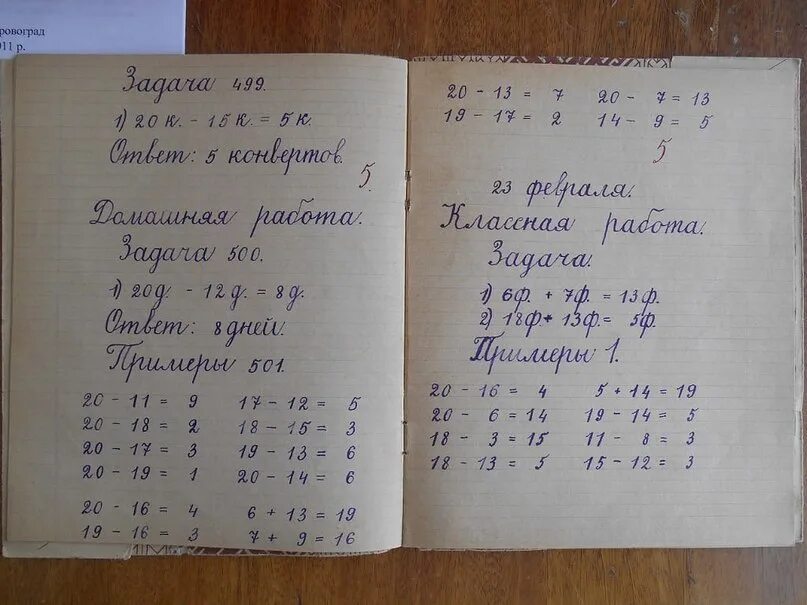 ровоград
011 р.
Задача 499.
1) 20 к. - 15 к. = 5 к.
Ответ: 5 конвертов.
5.
Домашняя работа.
Задача 500.
1) 20 д. - 12 д. = 8 д.
Ответ: 8 дней.
Примеры 501.
20 - 11 = 9 17 - 12 = 5
20 - 18 = 2 18 - 15 = 3
20 - 17 = 3 19 - 13 = 6
20 - 19 = 1 20 - 14 = 6
20 - 16 = 4 6 + 13 = 19
19 - 16 = 3 7 + 9 = 16
20 - 13 = 7 20 - 7 = 13
19 - 17 = 2 14 - 9 = 5
5
23 февраля.
Классная работа.
Задача.
1) 6ф. + 7ф. = 13ф.
2) 18ф + 13ф. = 5ф.
Примеры 1.
20 - 16 = 4 5 + 14 = 19
20 - 6 = 14 19 - 14 = 5
18 - 3 = 15 11 - 8 = 3
18 - 13 = 5 15 - 12 = 3